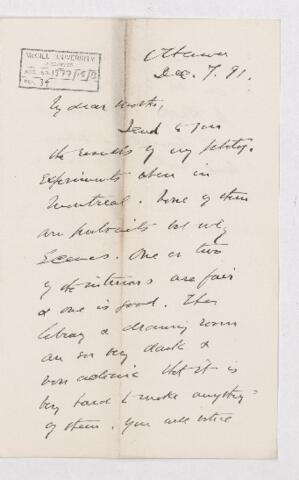 McGILL UNIVERSITY
ARCHIVES
ACC. NO. 1577/
REF. 34
Ottawa
Dec. 7. 91.
My dear
I send to you
the results of my photog.
experiments when in
Montreal. None of them
are portraits but only
scenes. One or two
of the interiors are fair
& one is good. The
library & drawing room
are so very dark &
that it is
very hard to make anything
of them. You will notice